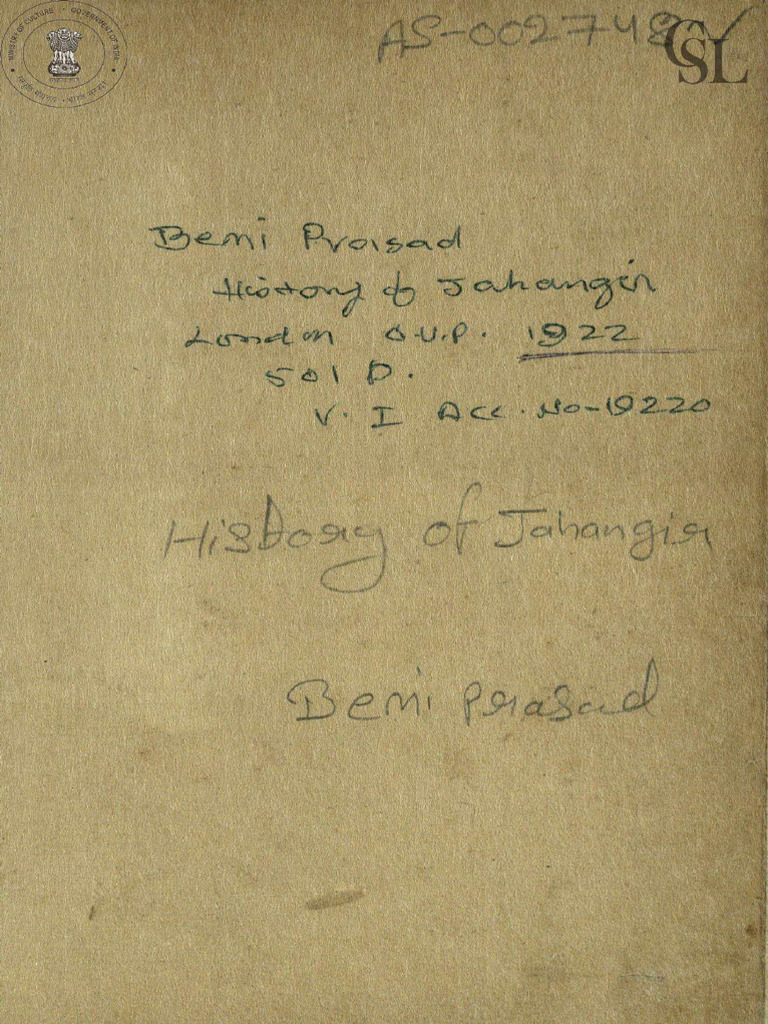 MINISTRY OF CULTURE GOVERNMENT OF INDIA
AS-002748
CSL
Beni Prasad
History of Jahangir
London O.U.P. 1922
501 P.
V. I Acc. No-19220
History of Jahangir
Beni Prasad